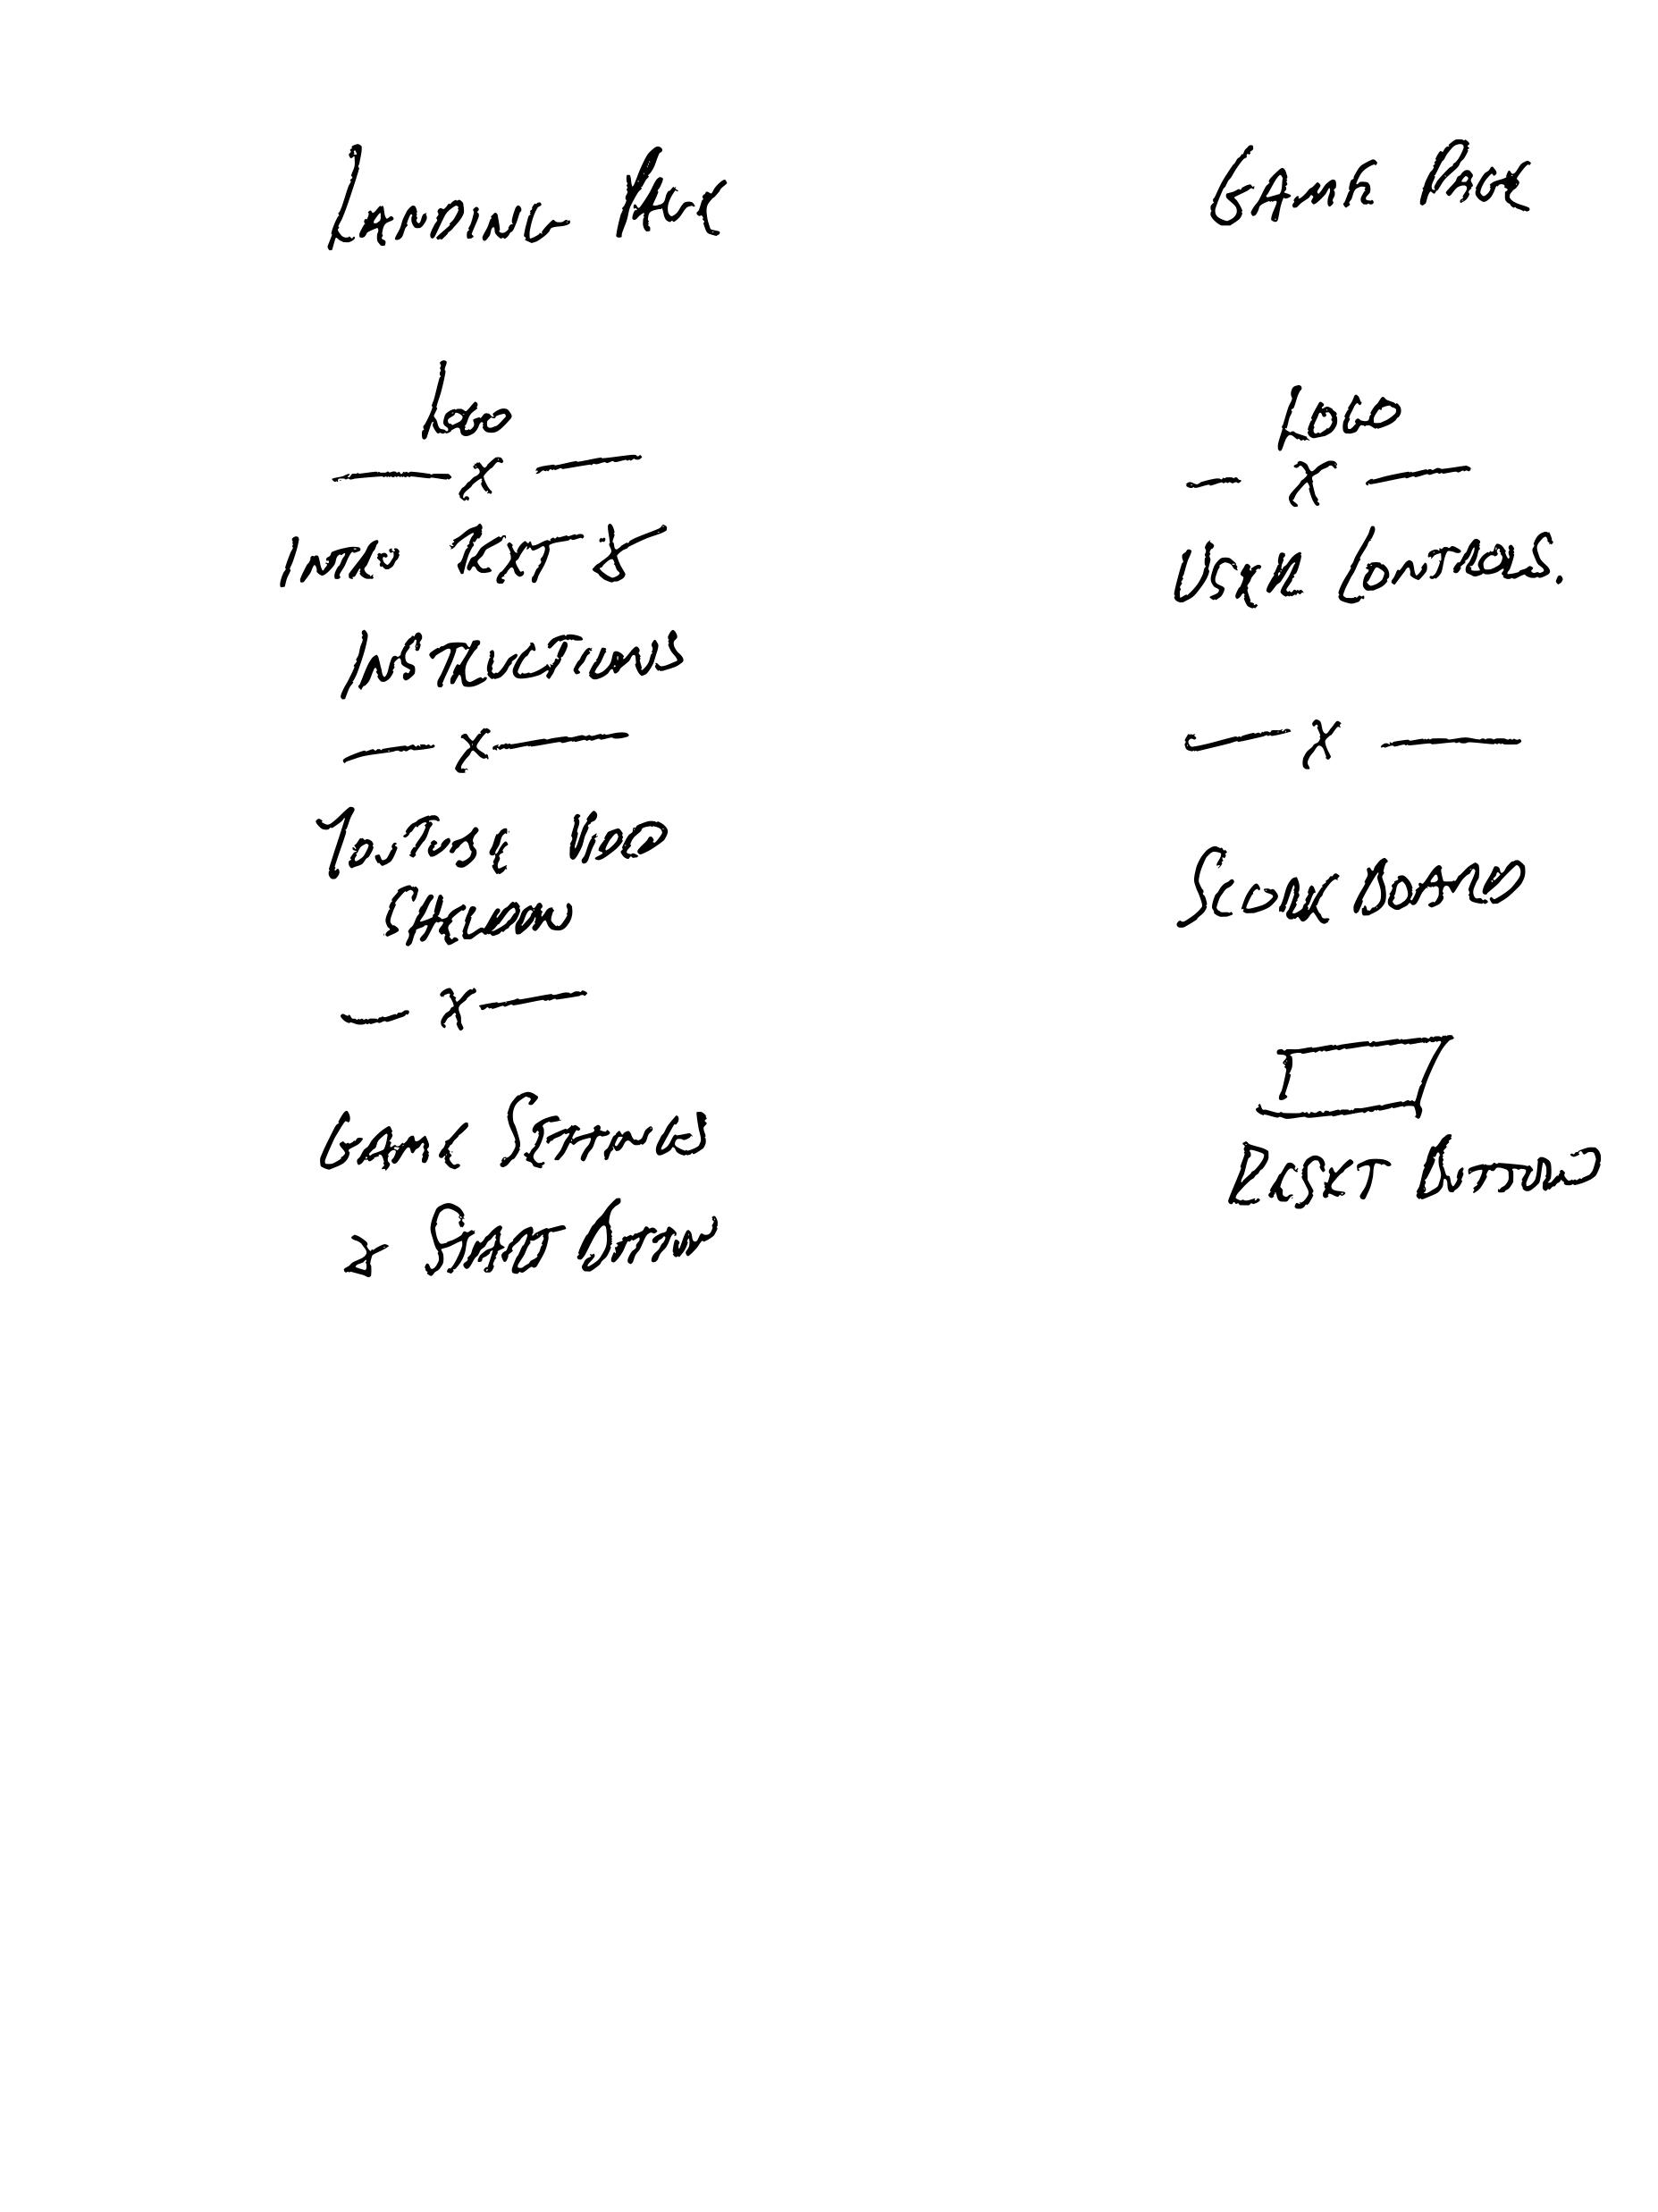 LANDING PAGE
LOGO
— X —
INTRO TEXT &
INSTRUCTIONS
— X —
YOUTUBE VIDEO
SHELDON
— X —
GAME SETTINGS
& START BUTTON
GAME PAGE
LOGO
— X —
USER CONTROLS.
— X —
SCORE BOARD
RESET BUTTONS